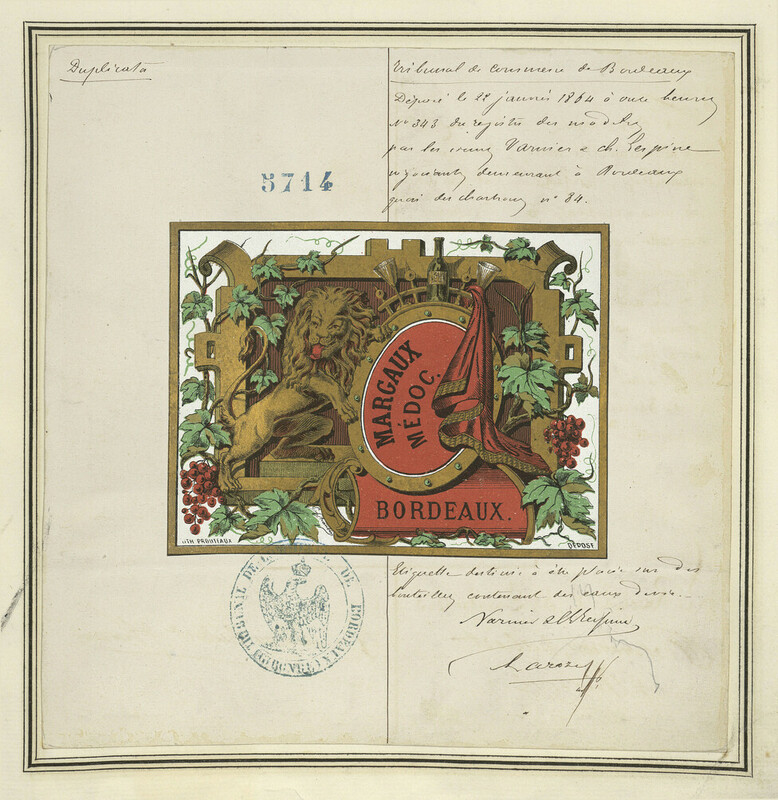 Duplicata
Tribunal de Commerce de Bordeaux
Déposé le 22 janvier 1864 à onze heures
N° 343 du registre des modèles
par les sieurs Varnier & ch. Lespine
négociants demeurant à Bordeaux
quai des chartrons n° 84.
5714
MARGAUX
MÉDOC.
BORDEAUX.
LITH PROUTEAUX
DÉPOSÉ
Etiquette destinée à être placée sur des
bouteilles contenant des eaux de vie.
TRIBUNAL DE COMMERCE DE BORDEAUX